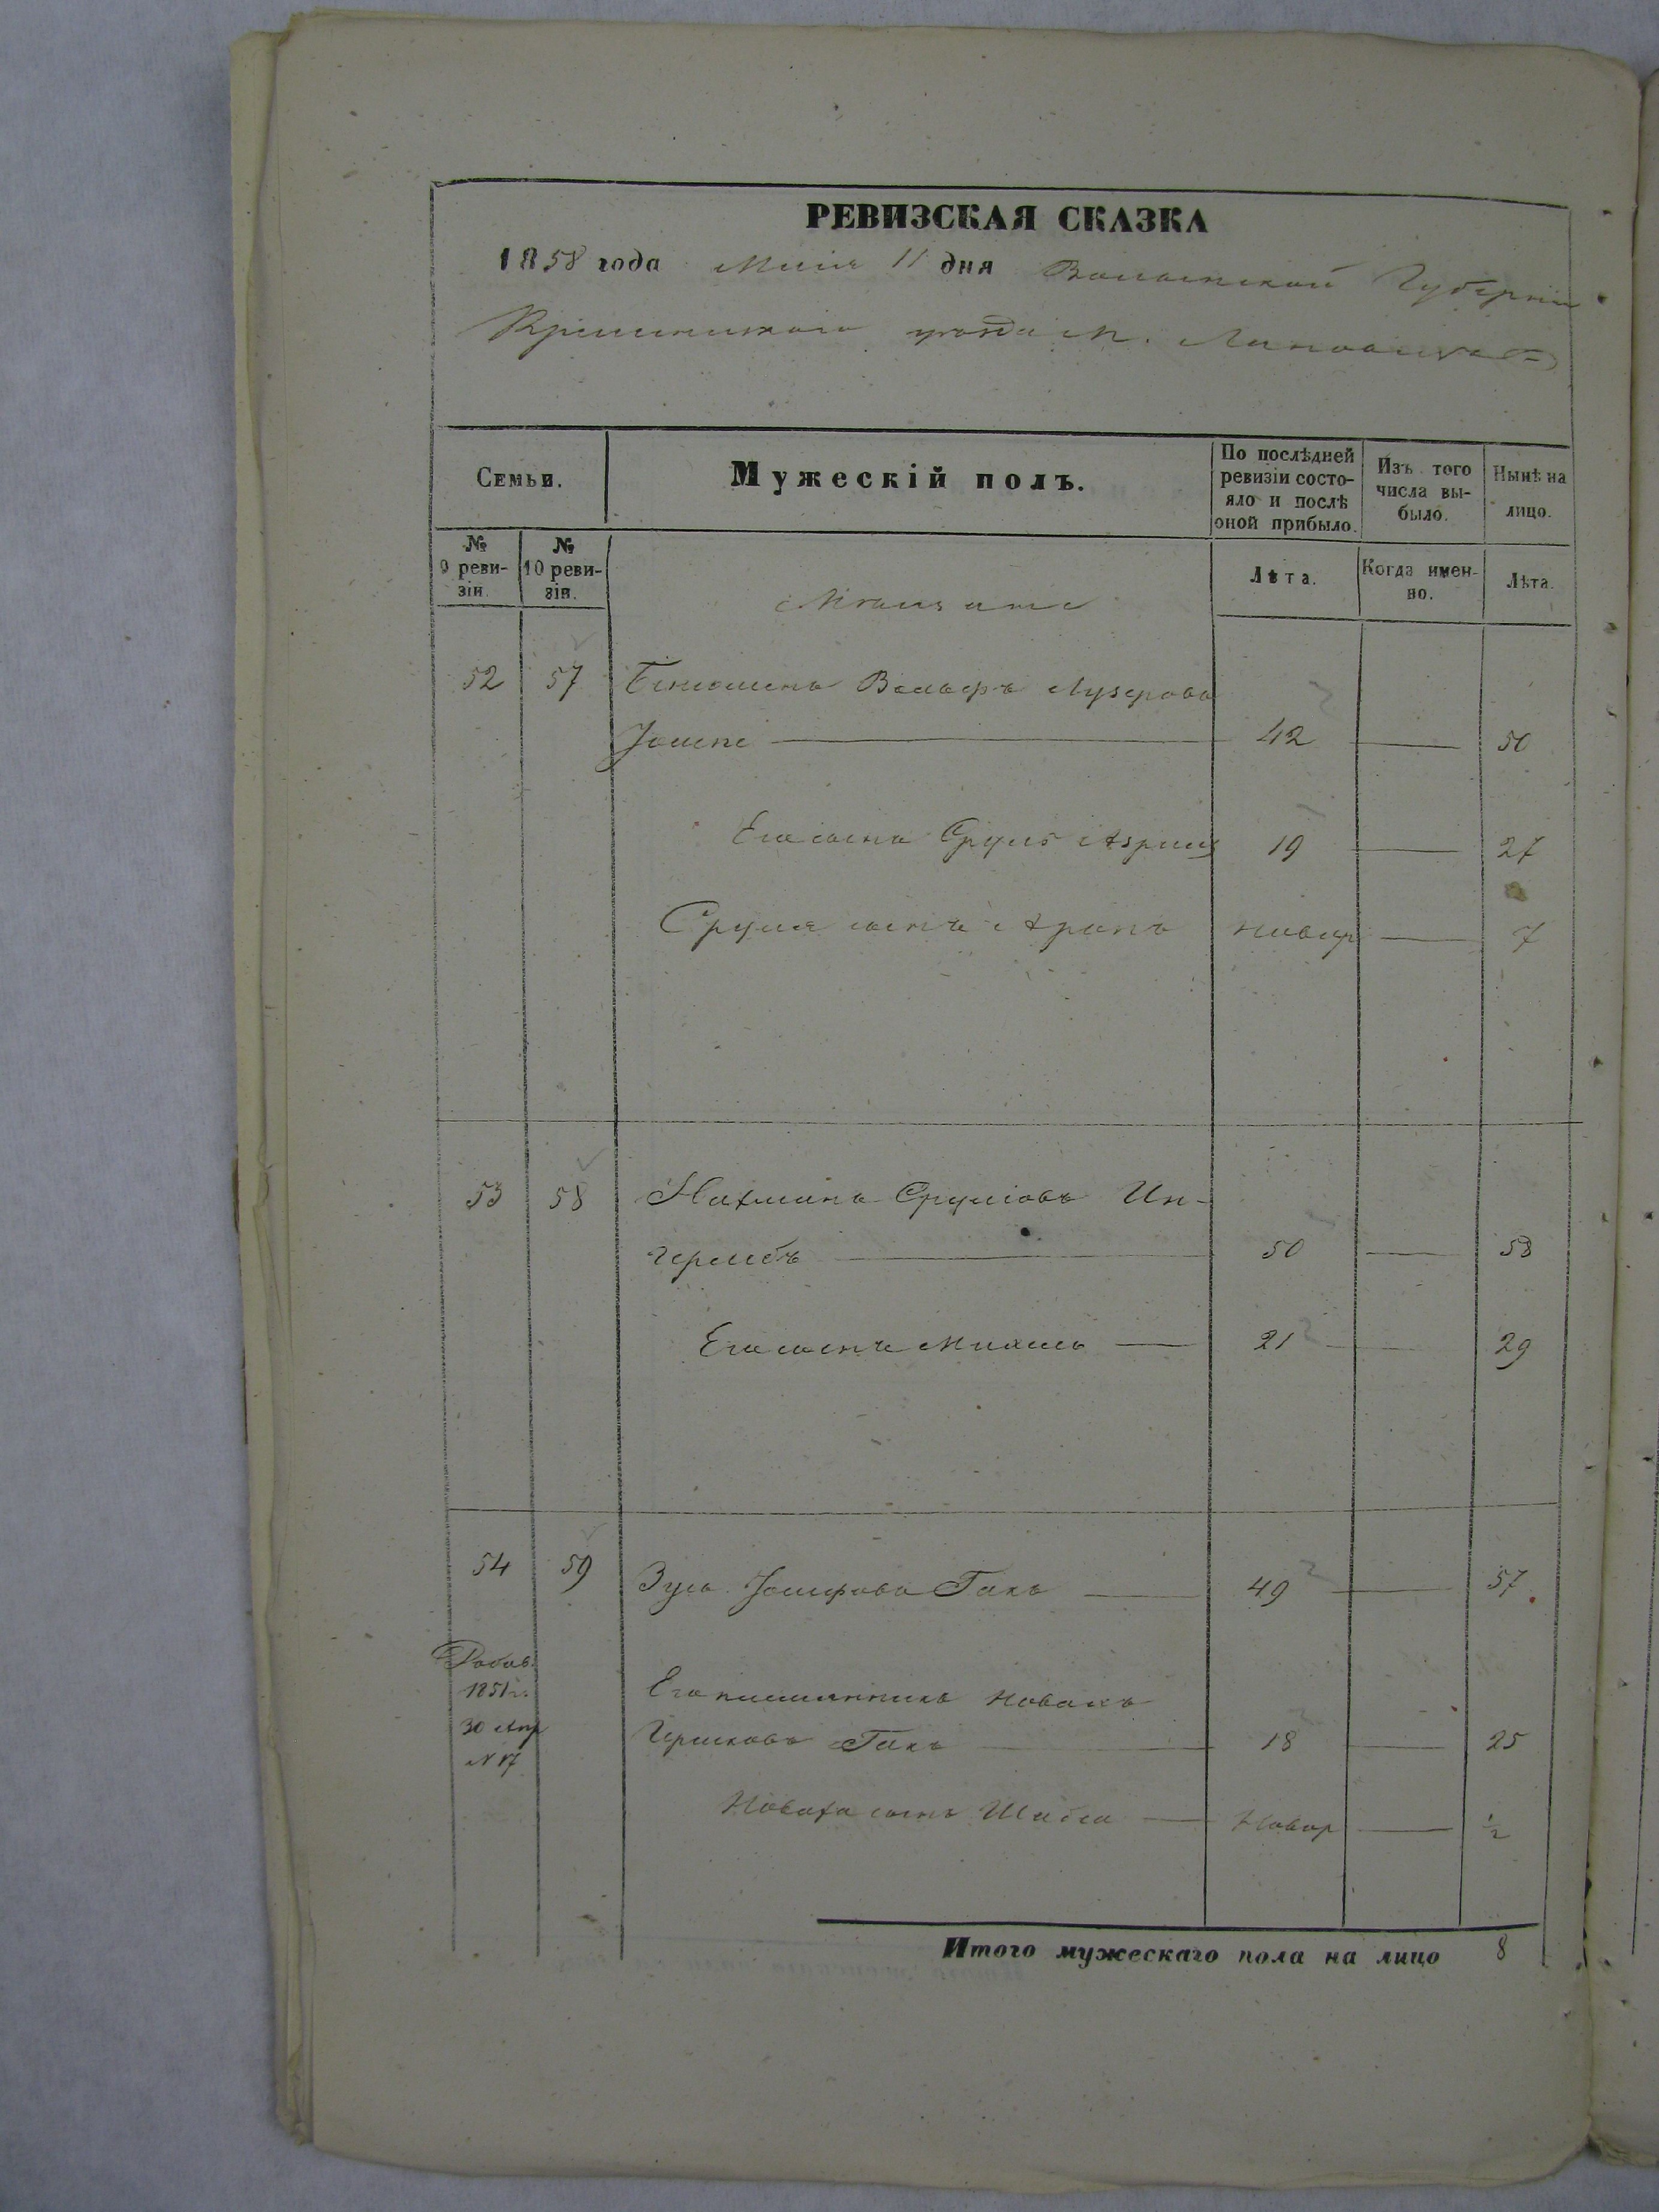 РЕВИЗСКАЯ СКАЗКА
1858 года Маія 11 дня Волынской Губерніи
Кременецкаго уезда м.
Семьи.
Мужескій полъ.
По послѣдней ревизіи состояло и послѣ оной прибыло.
Изъ того числа выбыло.
Нынѣ на лицо.
№ 9 ревизіи.
№ 10 ревизіи.
Мещане
Лѣта.
Когда именно.
Лѣта.
52 57 Беніоминъ Вольфъ Лузеровъ
42 50
Его сынъ Сруль 19 27
Сруля сынъ Аронъ новор 7
53 58 Нахманъ Сруліовъ Ин-
герлебъ 50 58
Его сынъ Михель 21 29
54 59 Зусь Іосифовъ Гакъ 49 57
Добав.
1851 г.
30 Апр
N 17
Его племянникъ Новахъ
Гершковъ Гакъ 18 25
Новаха сынъ Шабса Новор 1/2
Итого мужескаго пола на лицо 8